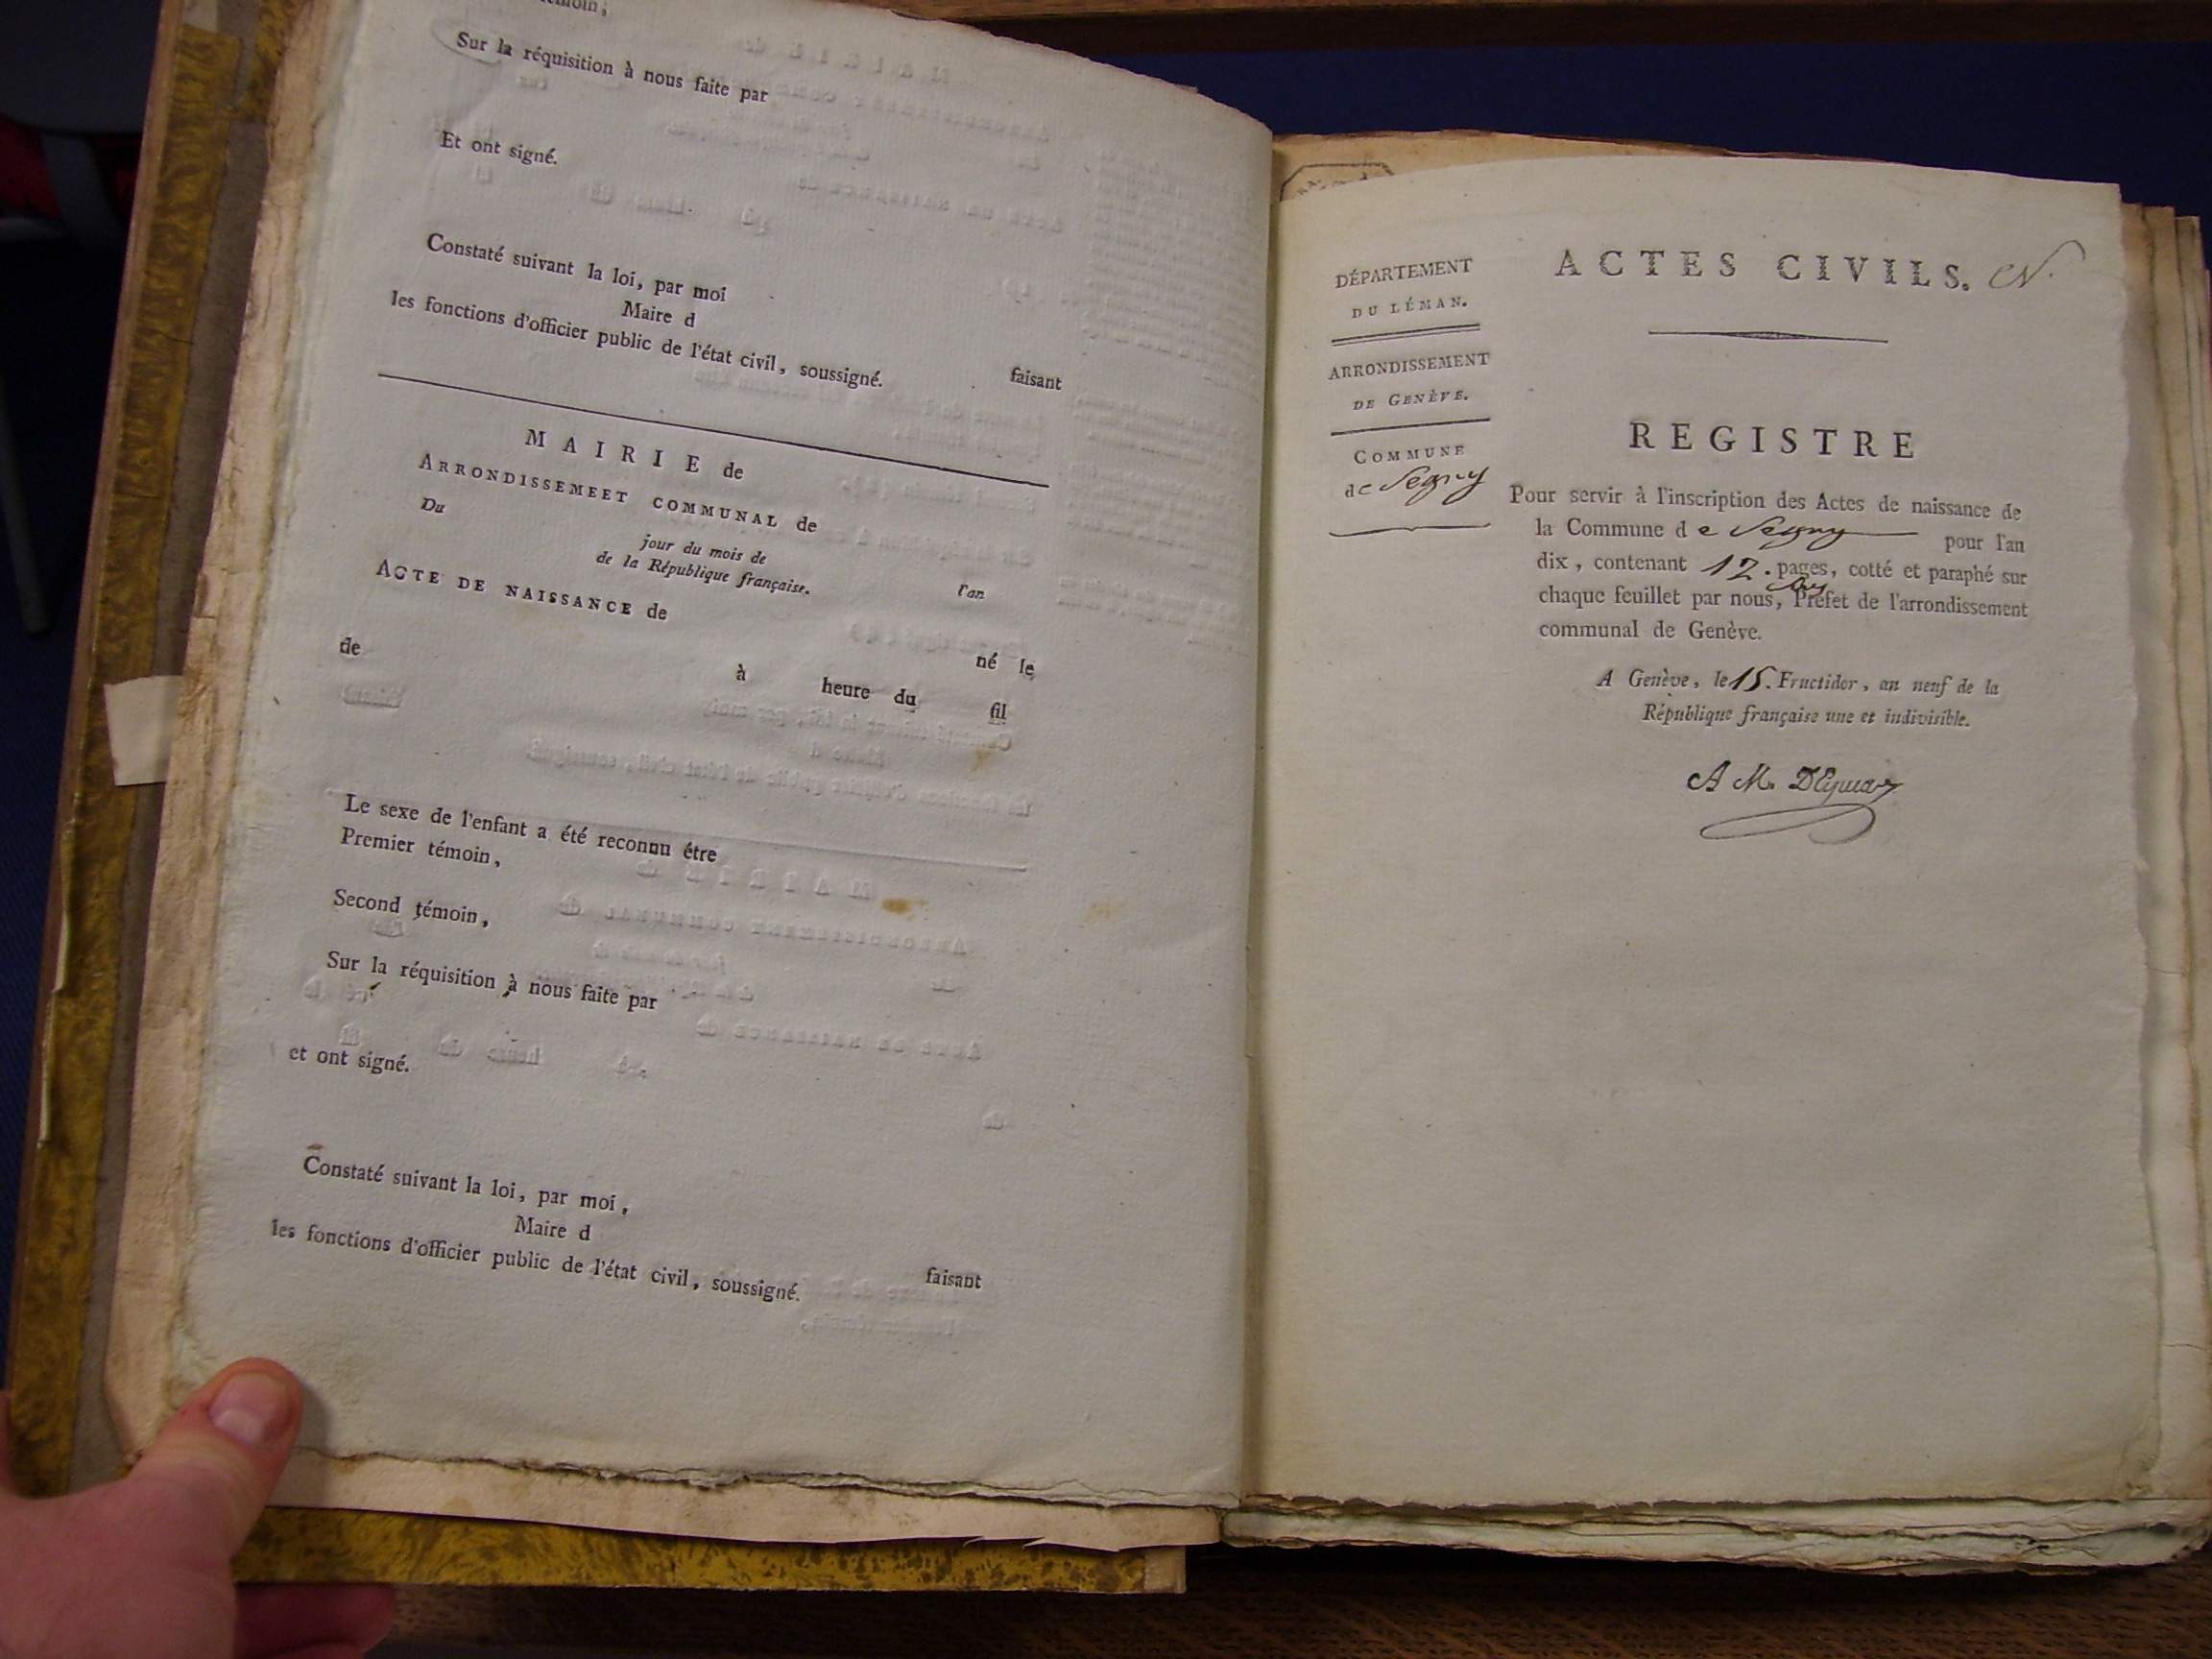 Sur la réquisition à nous faite par
Et ont signé.
Constaté suivant la loi, par moi
Maire d
faisant
les fonctions d'officier public de l'état civil, soussigné.
MAIRIE de
ARRONDISSEMEET COMMUNAL de
Du
jour du mois de
l'an
de la République française.
ACTE DE NAISSANCE de
né le
de
à heure du
fil
Le sexe de l'enfant a été reconnu être
Premier témoin,
Second témoin,
Sur la réquisition à nous faite par
et ont signé.
Constaté suivant la loi, par moi,
Maire d
faisant
les fonctions d'officier public de l'état civil, soussigné.
DÉPARTEMENT
DU LÉMAN.
ARRONDISSEMENT
DE GENÈVE.
COMMUNE
de Segny
ACTES CIVILS. N.
REGISTRE
Pour servir à l'inscription des Actes de naissance de
la Commune de Segny pour l'an
dix, contenant 12. pages, cotté et paraphé sur
chaque feuillet par nous, Préfet de l'arrondissement
communal de Genève.
A Genève, le 15. Fructidor, an neuf de la
République française une et indivisible.
A M. DEymar